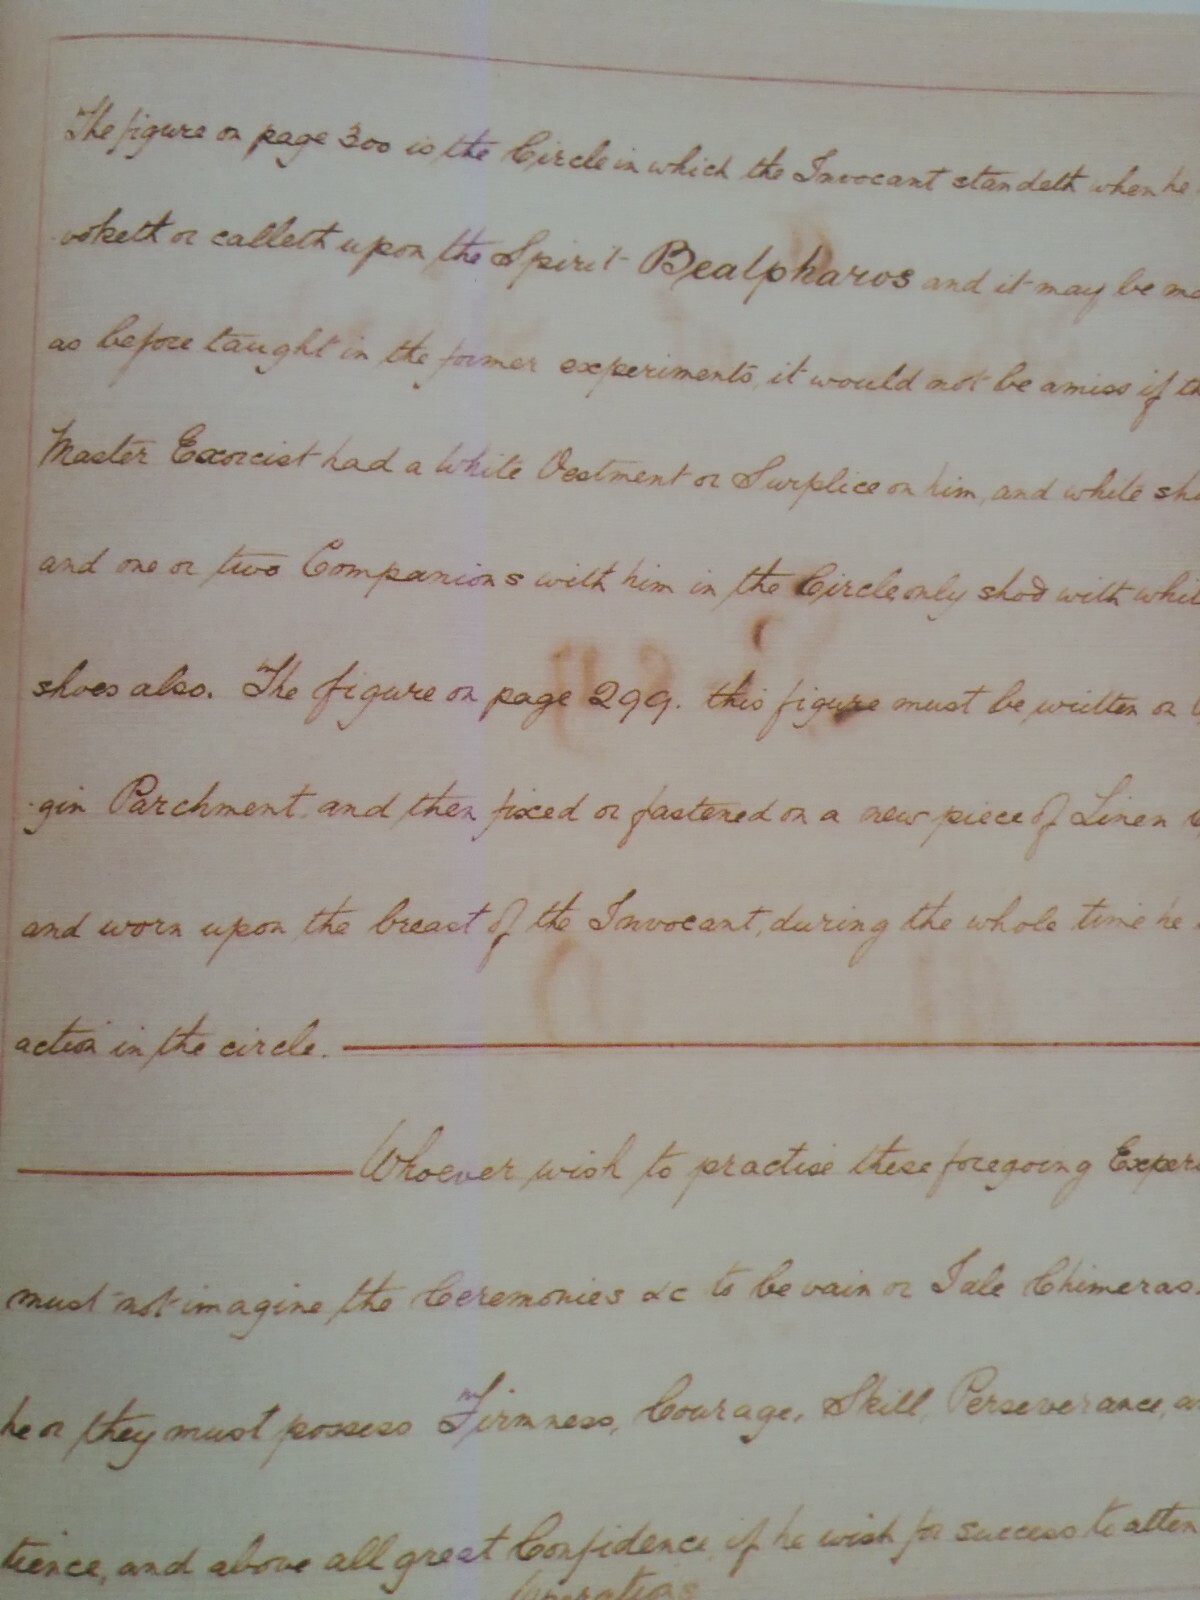 The figure on page 300 is the Circle in which the Invocant standeth when he
voketh or calleth upon the Spirit Bealpharos and it may be ma
as before taught in the former experiments, it would not be amiss if th
Master Exorcist had a White Vestment or Surplice on him, and white sho
and one or two Companions with him in the Circle only shod with whit
shoes also. The figure on page 299. this figure must be written on
gin Parchment, and then fixed or fastened on a new piece of Linen
and worn upon the breast of the Invocant, during the whole time he
action in the circle.
Whoever wish to practise these foregoing Exper
must not imagine the Ceremonies &c to be vain or Idle Chimeras.
he or they must possess Firmness, Courage, Skill, Perseverance, a
tience, and above all great Confidence, if he wish for success to atten
Operations